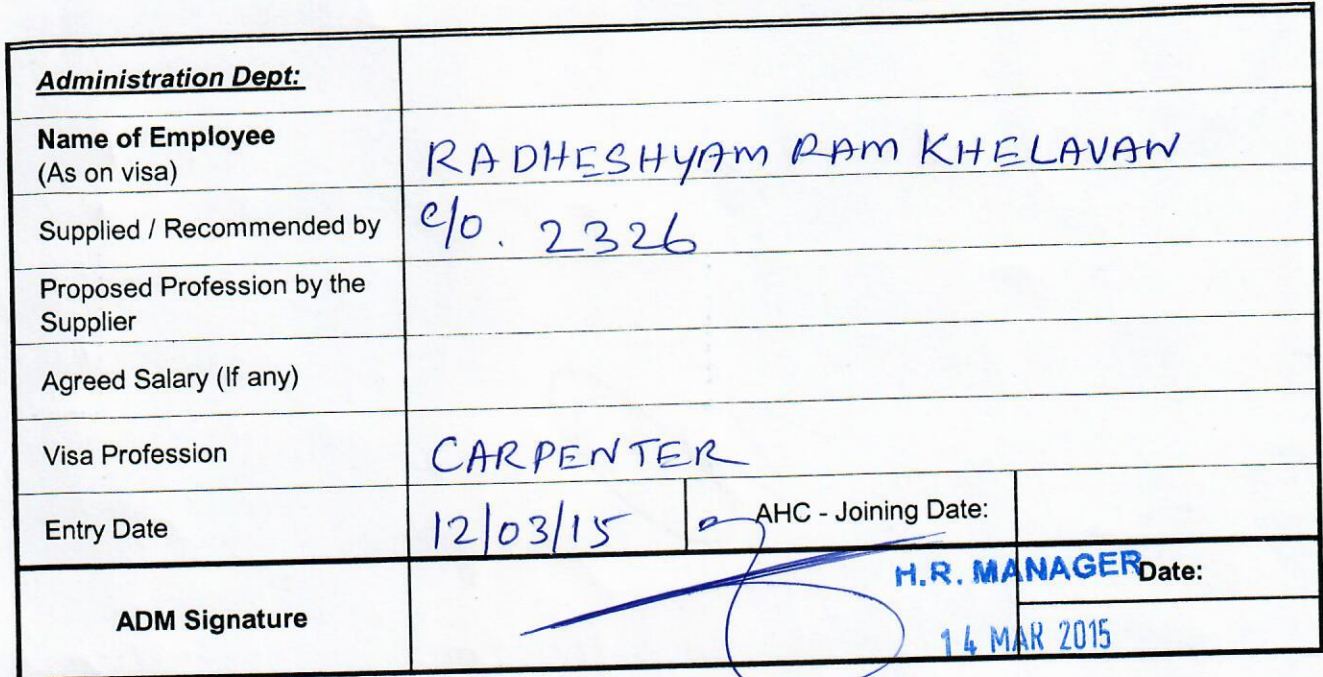 Administration Dept:
Name of Employee
(As on visa)
RADHESHYAM RAM KHELAVAN
Supplied / Recommended by
c/o. 2326
Proposed Profession by the
Supplier
Agreed Salary (If any)
Visa Profession
CARPENTER
Entry Date
12/03/15
AHC - Joining Date:
ADM Signature
H.R. MANAGER
Date:
14 MAR 2015